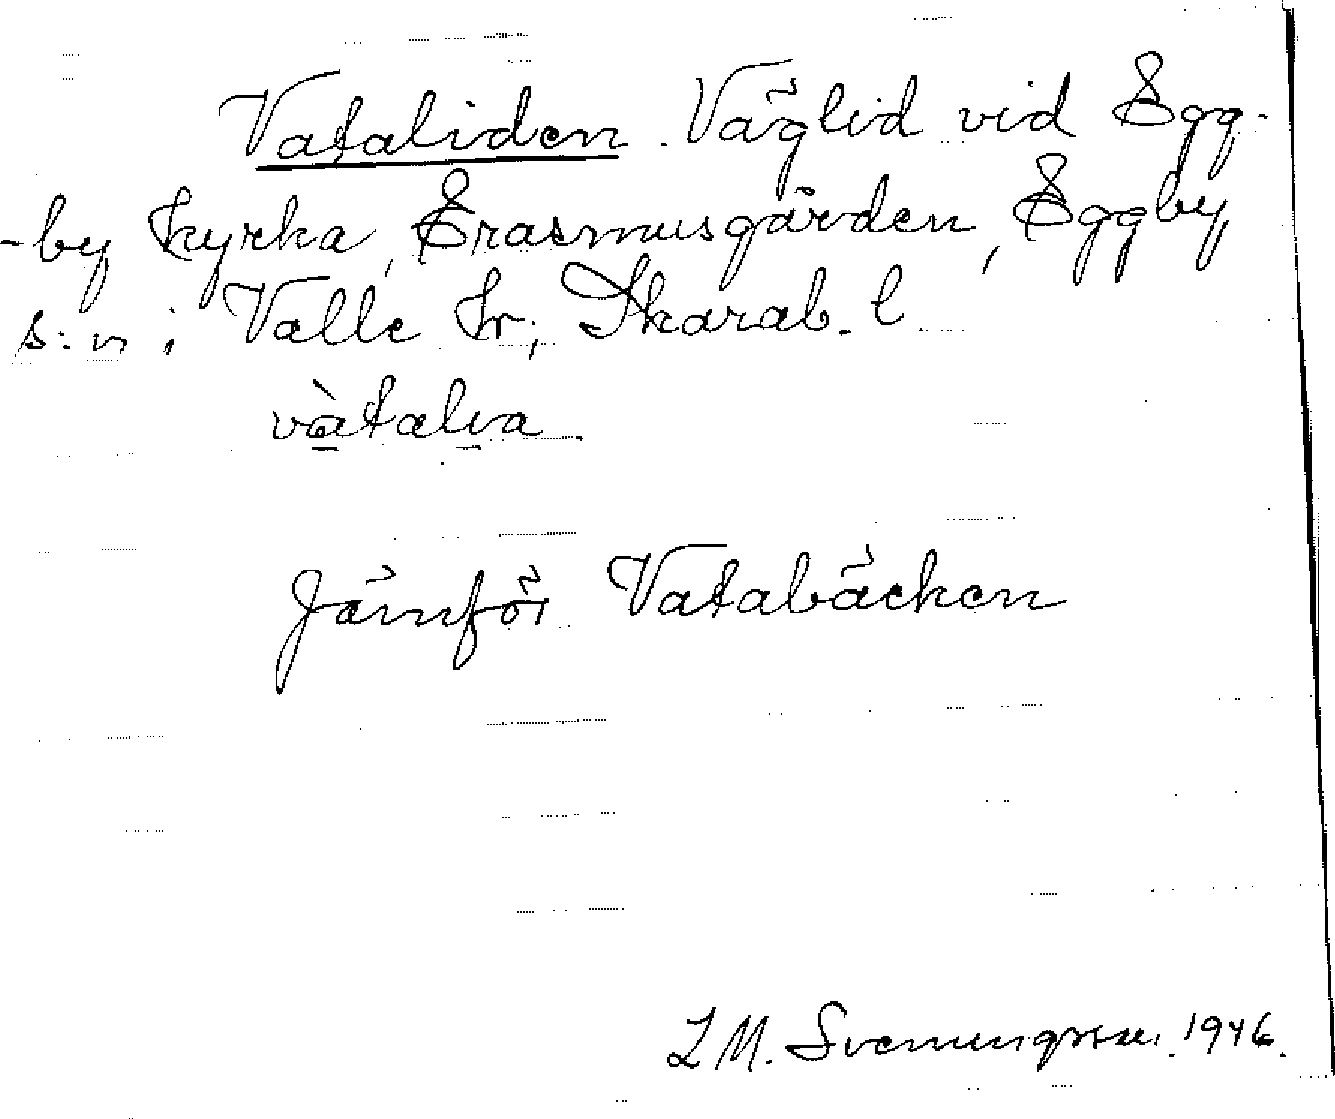 Vataliden. Väglid vid Egg-
-by kyrka, Erasmusgården, Eggby
s:n i Valle hr, Skarab. l
vàtalia
Jämför Vatabäcken
L M. Svenungsson. 1946.